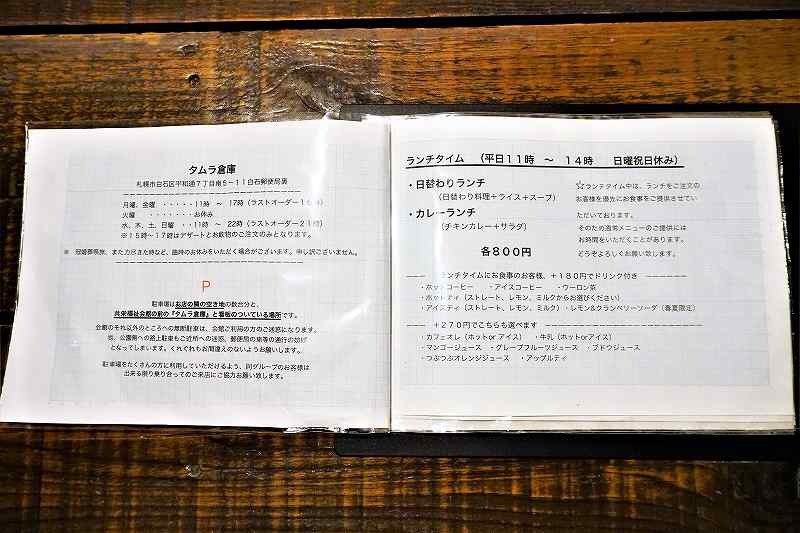 タムラ倉庫
札幌市白石区平和通7丁目南5-11白石郵便局裏
月曜、金曜 ・・・・・11時 ～ 17時（ラストオーダー16時）
火曜 ・・・・・・・お休み
水、木、土、日曜 ・・11時 ～ 22時（ラストオーダー21時）
※15時～17時はデザートとお飲物のご注文のみとなります。
※ 冠婚葬祭、また力尽きた時など、臨時のお休みをいただく場合がございます。申し訳ございません。
P
駐車場はお店の隣の空き地の数台分と、
共栄福祉会館の前の『タムラ倉庫』と看板のついている場所です。
会館のそれ以外のところへの無断駐車は、会館ご利用の方のご迷惑になります。
尚、公園側への路上駐車もご近所への迷惑、郵便局の車等の通行の妨げ
となってしまいます。くれぐれもお間違えのないようお願いします。
駐車場をたくさんの方に利用していただけるよう、同グループのお客様は
出来る限り乗り合ってのご来店にご協力お願い致します。
ランチタイム （平日11時 ～ 14時 日曜祝日休み）
・日替わりランチ
（日替わり料理＋ライス＋スープ）
・カレーランチ
（チキンカレー＋サラダ）
各800円
☆ランチタイム中は、ランチをご注文の
お客様を優先にお食事をご提供させてい
ただいております。
そのため通常メニューのご提供には
お時間をいただくことがあります。
どうぞよろしくお願い致します。
ランチタイムにお食事のお客様、＋180円でドリンク付き
・ホットコーヒー ・アイスコーヒー ・ウーロン茶
・ホットティ（ストレート、レモン、ミルクからお選びください）
・アイスティ（ストレート、レモン、ミルク）・レモン&クランベリーソーダ（春夏限定）
＋270円でこちらも選べます
・カフェオレ（ホットor アイス） ・牛乳（ホットorアイス）
・マンゴージュース ・グレープフルーツジュース ・ブドウジュース
・つぶつぶオレンジジュース ・アップルティ